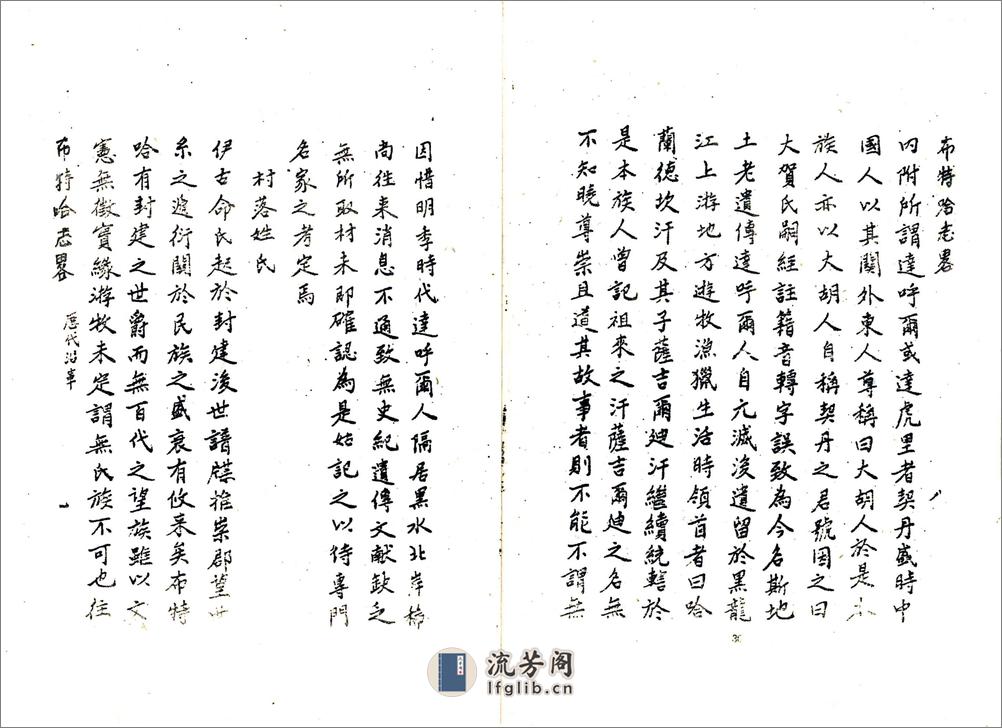 布特哈志畧
八
內附所謂達呼爾或達虎里者契丹盛時中
國人以其關外東人尊稱曰大胡人於是本
族人亦以大胡人自稱契丹之君號因之曰
大賀氏嗣經註籍音轉字誤致為今名斯地
土老遺傳達呼爾人自元滅後遺留於黑龍
江上游地方遊牧漁獵生活時領首者曰哈
蘭德坎汗及其子薩吉爾廸汗繼續統轄於
是本族人曾記祖來之汗薩吉爾廸之名無
不知曉尊崇且道其故事者則不能不謂無
30
因惜明季時代達呼爾人隔居黑水北岸稀
尚往來消息不通致無史紀遺傳文献欽乏
無所取材未即確認為是姑記之以待專門
名家之考定焉
村落姓氏
伊古命氏起於封建後世譜牒推崇郡望世
系之遞衍關於民族之盛衰有攸來矣布特
哈有封建之世爵而無百代之望族雖以文
憲無徵實緣游牧未定謂無氏族不可也往
布特哈志畧
歷代沿革
流芳阁
lfglib.cn